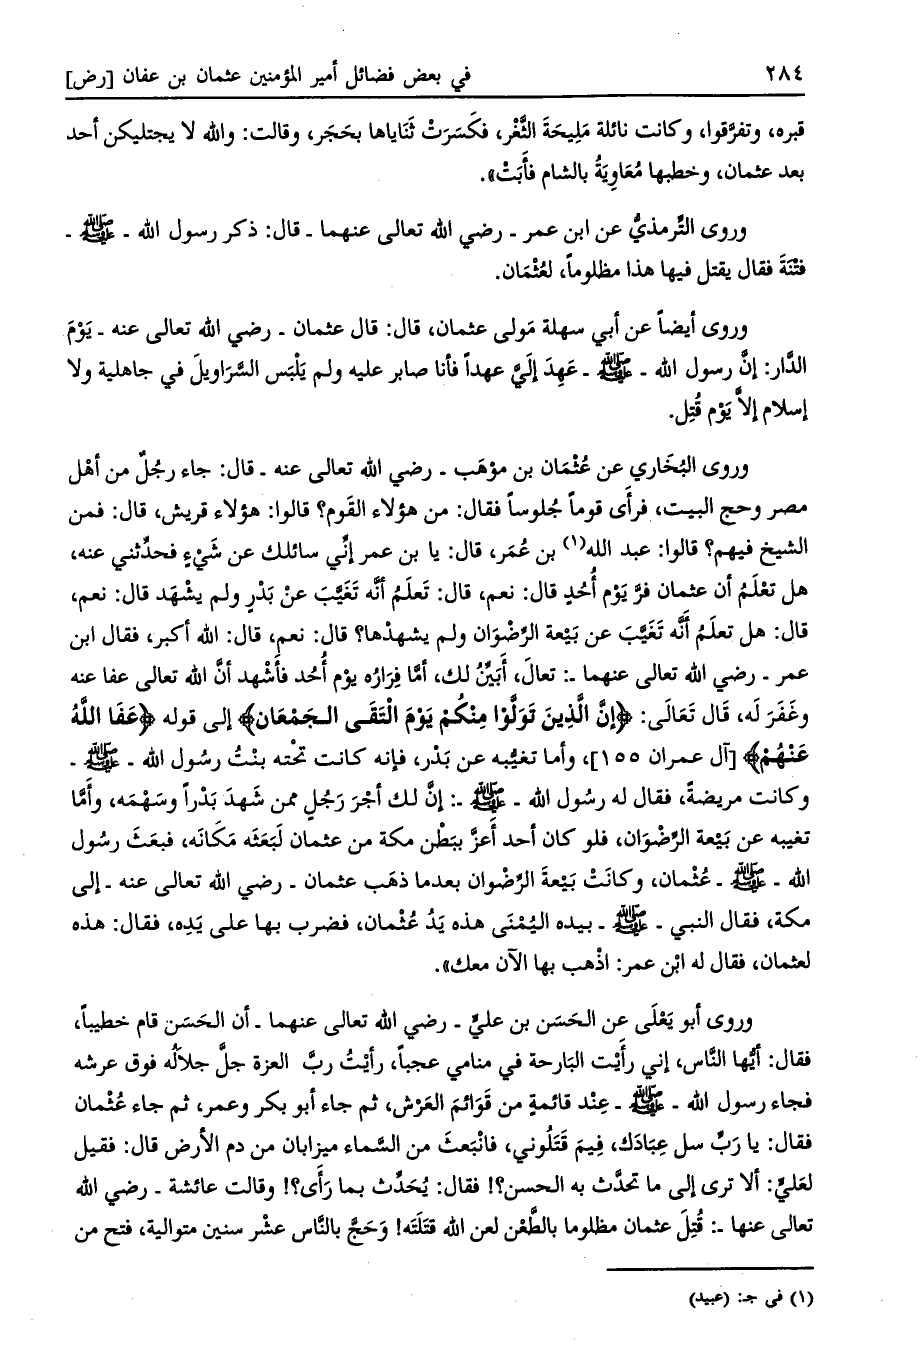 ٢٨٤ في بعض فضائل أمير المؤمنين عثمان بن عفان [رض]
قبره، وتفرَّقوا، وكانت نائلة مَلِيحَةَ الثَّغْر، فكَسَرَتْ ثَنَاياها بحَجَر، وقالت: والله لا يجتليكن أحد
بعد عثمان، وخطبها مُعَاوِيَةُ بالشام فأَبَتْ».
وروى التِّرمذيُّ عن ابن عمر ـ رضي الله تعالى عنهما ـ قال: ذكر رسول الله ـ ﷺ ـ
فتْنَةَ فقال يقتل فيها هذا مظلوماً، لعُثْمَان.
وروى أيضاً عن أبي سهلة مَولى عثمان، قال: قال عثمان ـ رضي الله تعالى عنه ـ يَوْمَ
الدَّار: إنَّ رسول الله ـ ﷺ ـ عَهِدَ إلَيَّ عهداً فأنا صابر عليه ولم يَلْبَس السَّرَاويلَ في جاهلية ولا
إسلام إلاَّ يَوْم قُتِل.
وروى البُخَاري عن عُثْمَان بن مؤهَب ـ رضي الله تعالى عنه ـ قال: جاء رجُلٌ من أهْل
مصر وحج البيت، فرأى قوماً جُلوساً فقال: من هؤلاء القَوم؟ قالوا: هؤلاء قريش، قال: فمن
الشيخ فيهم؟ قالوا: عبد الله(١) بن عُمَر، قال: يا بن عمر إنِّي سائلك عن شَيْءٍ فحدِّثني عنه،
هل تعْلَمُ أن عثمان فرَّ يَوْم أُحُدٍ قال: نعم، قال: تَعلَمُ أنَّه تَغَيَّبَ عنْ بَدْرٍ ولم يشْهَد قال: نعم،
قال: هل تعلَمُ أنَّه تَغَيَّبَ عن بَيْعة الرِّضْوَان ولم يشهدْها؟ قال: نعم، قال: الله أكبر، فقال ابن
عمر ـ رضي الله تعالى عنهما ـ: تعالَ، أَبَيِّنُ لك، أمَّا فِرَارُه يوْم أُحُد فأَشْهد أنَّ الله تعالى عفا عنه
وغَفَرَ لَه، قال تَعَالَى: ﴿إنَّ الَّذِينَ تَوَلَّوْا مِنْكُمْ يَوْمَ الْتَقَى الجَمْعَان﴾ إلى قوله ﴿عَفَا اللَّهُ
عَنْهُمْ﴾ [آل عمران ١٥٥]، وأما تغيُّبه عن بَدْر، فإنه كانت تحْته بنْتُ رسُول الله ـ ﷺ ـ
وكانت مريضةً، فقال له رسُول الله ـ ﷺ ـ: إنَّ لك أجْرَ رَجُلٍ ممن شَهدَ بَدْراً وسَهْمَه، وأمَّا
تغيبه عن بَيْعة الرِّضْوَان، فلو كان أحد أَعزَّ ببَطْن مكة من عثمان لَبَعَثَه مَكَانَه، فبعَثَ رسُول
الله ـ ﷺ ـ عُثْمان، وكانَتْ بَيْعةَ الرِّضْوان بعدما ذهَب عثمان ـ رضي الله تعالى عنه ـ إلى
مكة، فقال النبي ـ ﷺ ـ بيده اليُمْنَى هذه يَدُ عُثْمان، فضرب بها على يَدِه، فقال: هذه
لعثمان، فقال له ابْن عمر: اذْهب بها الآن معك».
وروى أبو يَعْلَى عن الحَسَن بن عليٍّ ـ رضي الله تعالى عنهما ـ أن الحَسَن قام خطيباً،
فقال: أيُّها النَّاس، إني رأَيْت البَارحة في منامي عجباً، رأيْتُ ربَّ العزة جلَّ جلالُه فوق عرشه
فجاء رسول الله ـ ﷺ ـ عِنْد قائمةٍ من قَوَائم العَرْش، ثم جاء أبو بكر وعمر، ثم جاء عُثْمان
فقال: يا رَبِّ سل عِبَادَك، فيمَ قَتَلُوني، فانْبَعثَ من السَّماء ميزابان من دم الأرض قال: فقيل
لعَليٍّ: ألا ترى إلى ما تحدَّث به الحسن؟! فقال: يُحَدِّث بما رَأَى؟! وقالت عائشة ـ رضي الله
تعالى عنها ـ: قُتِلَ عثمان مظلوما بالطَّعْن لعن الله قتَلَتَه! وَحَجَّ بالنَّاس عشْر سنين متوالية، فتح من
(١) في جـ: (عبيد)